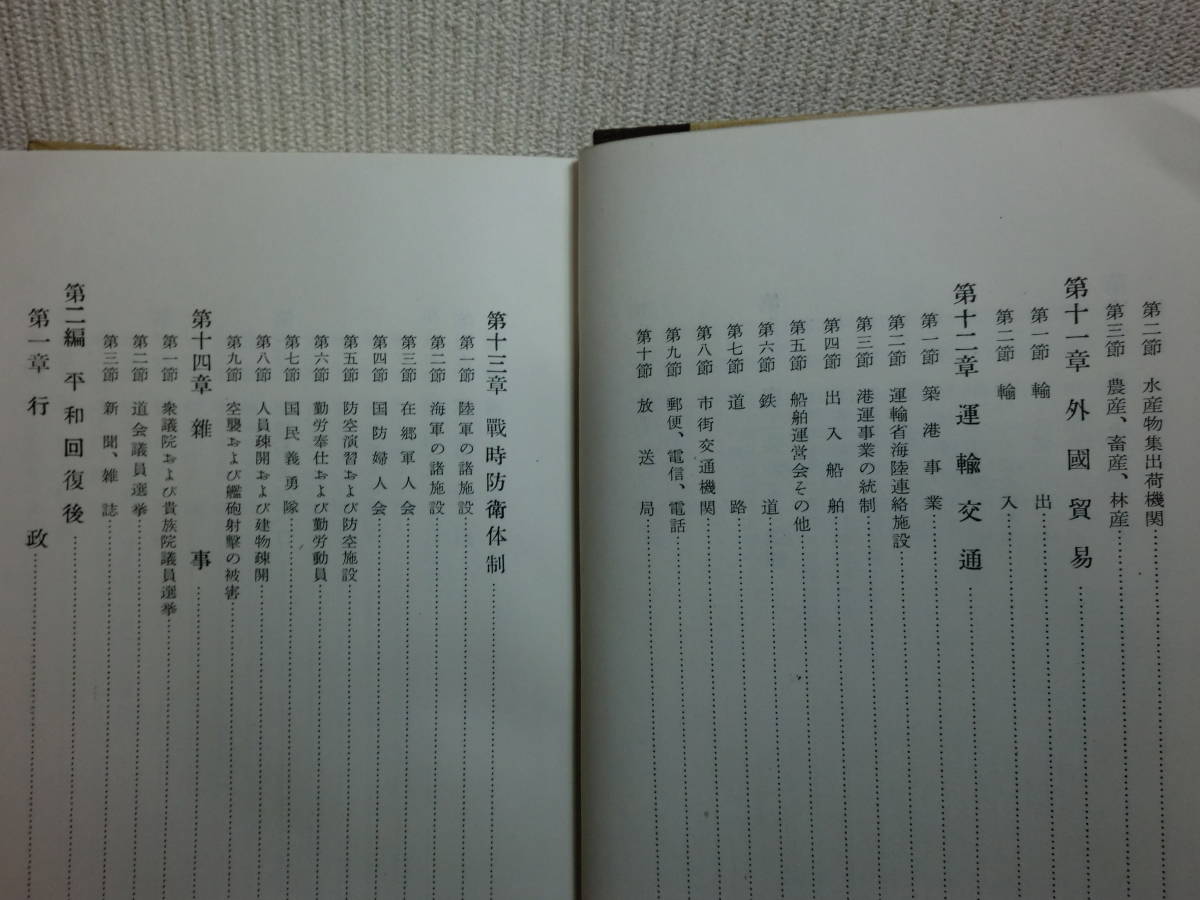 第二節 水産物集出荷機関
第三節 農産、畜産、林産
第十一章 外國貿易
第一節 輸出
第二節 輸入
第十二章 運輸交通
第一節 築港事業
第二節 運輸省海陸連絡施設
第三節 港運事業の統制
第四節 出入船舶
第五節 船舶運営会その他
第六節 鉄道
第七節 道路
第八節 市街交通機関
第九節 郵便、電信、電話
第十節 放送局
第十三章 戰時防衛体制
第一節 陸軍の諸施設
第二節 海軍の諸施設
第三節 在郷軍人会
第四節 国防婦人会
第五節 防空演習および防空施設
第六節 勤労奉仕および勤労動員
第七節 国民義勇隊
第八節 人員疎開および建物疎開
第九節 空襲および艦砲射撃の被害
第十四章 雑事
第一節 衆議院および貴族院議員選挙
第二節 道会議員選挙
第三節 新聞、雑誌
第二編 平和回復後
第一章 行政